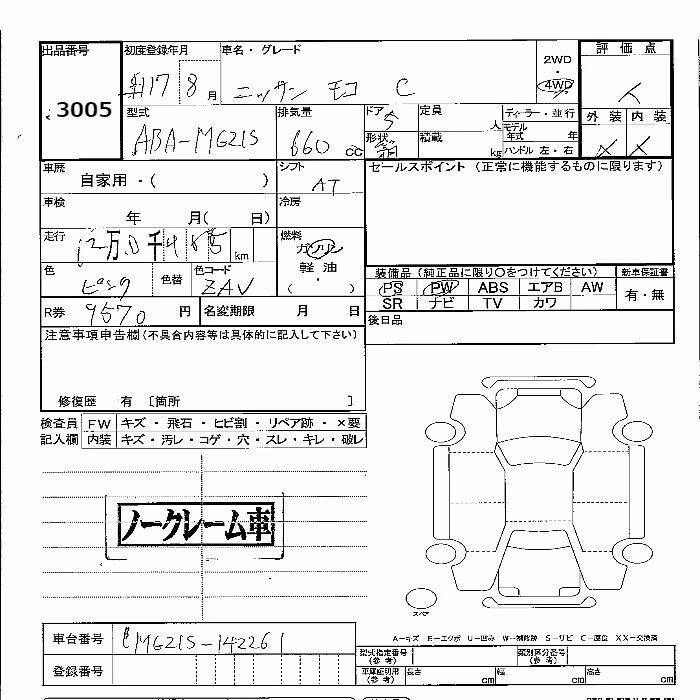 出品番号 初度登録年月 車名・グレード 2WD 評価点
3005 17 8月 ニッサン モコ C 4WD
型式 排気量 ドア 定員 ディラー・並行 外装 内装
ABA-MG21S 660 cc 5 人 モデル年式 年
形状 積載 kg ハンドル 左・右 × ×
車歴 シフト セールスポイント (正常に機能するものに限ります)
自家用・( ) AT
車検 冷房
年 月( 日)
走行 燃料
万 千 km ガソリン
色 色替 色コード 軽油
ピンク ZAV ( ・ )
装備品 (純正品に限り〇をつけてください) 新車保証書
PS PW ABS エアB AW 有・無
SR ナビ TV カワ
R券 9570 円 名変期限 月 日
後日品
注意事項申告欄(不具合内容等は具体的に記入して下さい)
修復歴 有 [箇所 ]
検査員 FW キズ・飛石・ヒビ割・リペア跡・×要
記入欄 内装 キズ・汚レ・コゲ・穴・スレ・キレ・破レ
ノークレーム車
スペア
A-キズ E-エクボ U-凹み W-補修跡 S-サビ C-腐蝕 XX-交換済
車台番号 MG21S-142261
型式指定番号(参考) 類別区分番号(参考)
登録番号
車庫証明用(参考) 長さ cm 幅 cm 高さ cm